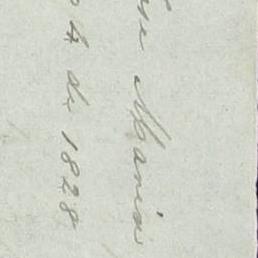 Maria
4 de 1828